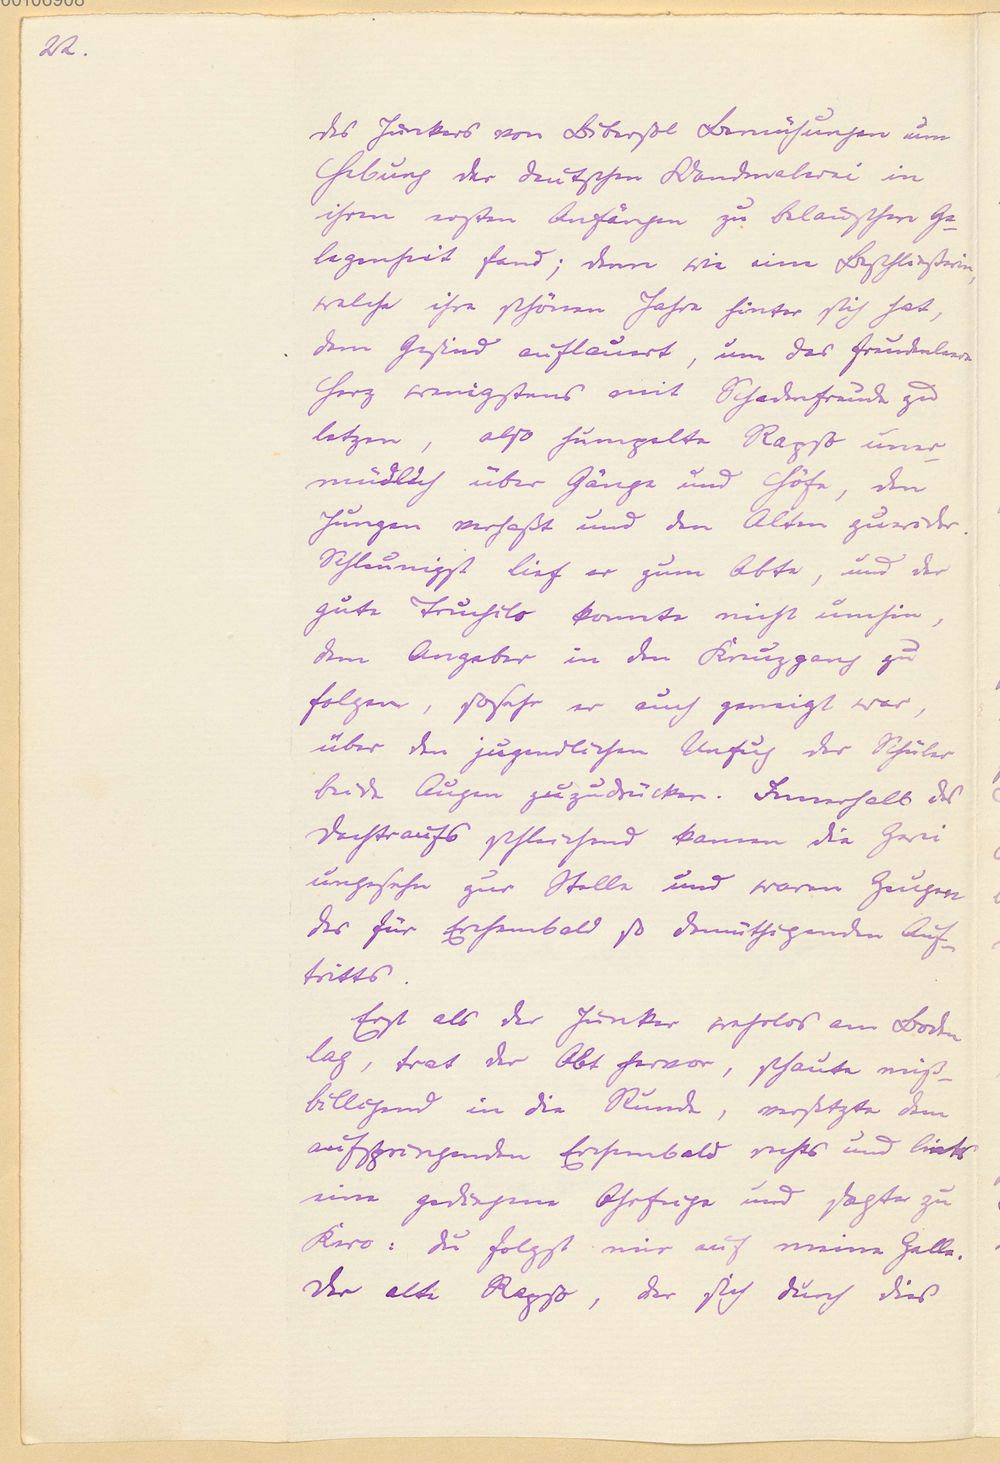 22.
des Junkers von Bibersol Bemühungen um
Hebung der deutschen Wandmalerei in
ihren ersten Anfängen zu belauschen Ge-
legenheit fand; denn wie eine Beschließerin,
welche ihre schönen Jahre hinter sich hat,
dem Gesind auflauert, um das freudenleere
Herz wenigstens mit Schadenfreude zu
letzen, also humpelte Rapso uner-
müdlich über Gänge und Höfe, den
Jungen verhaßt und den Alten zuwider.
Schleunigst lief er zum Abte, und der
gute Truchilo konnte nicht umhin,
dem Angeber in den Kreuzgang zu
folgen, sosehr er auch geneigt war,
über den jugendlichen Unfug der Schüler
beide Augen zuzudrücken. Innerhalb des
Dachtraufs schleichend kamen die Zwei
ungesehn zur Stelle und waren Zeugen
des für Erchembald so demüthigenden Auf-
tritts.
Erst als der Junker wehrlos am Boden
lag, trat der Abt hervor, schaute miß-
billigend in die Runde, versetzte dem
aufspringenden Erchembald rechts und links
eine gediegene Ohrfeige und sagte zu
Kero: du folgst mir auf meine Zelle.
Der alte Rapso, der sich durch dies